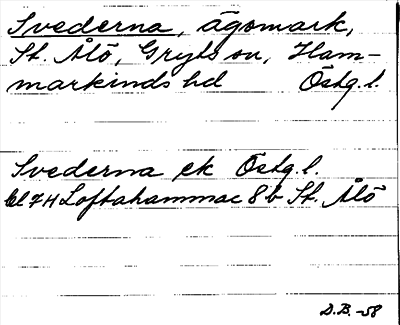 Svederna, ägomark,
St. Ålö, Gryts sn, Ham-
markinds hd Östg.l.
Svederna ek Östg.l.
bl 7H Loftahammar 8b St. Ålö
D.B. -58